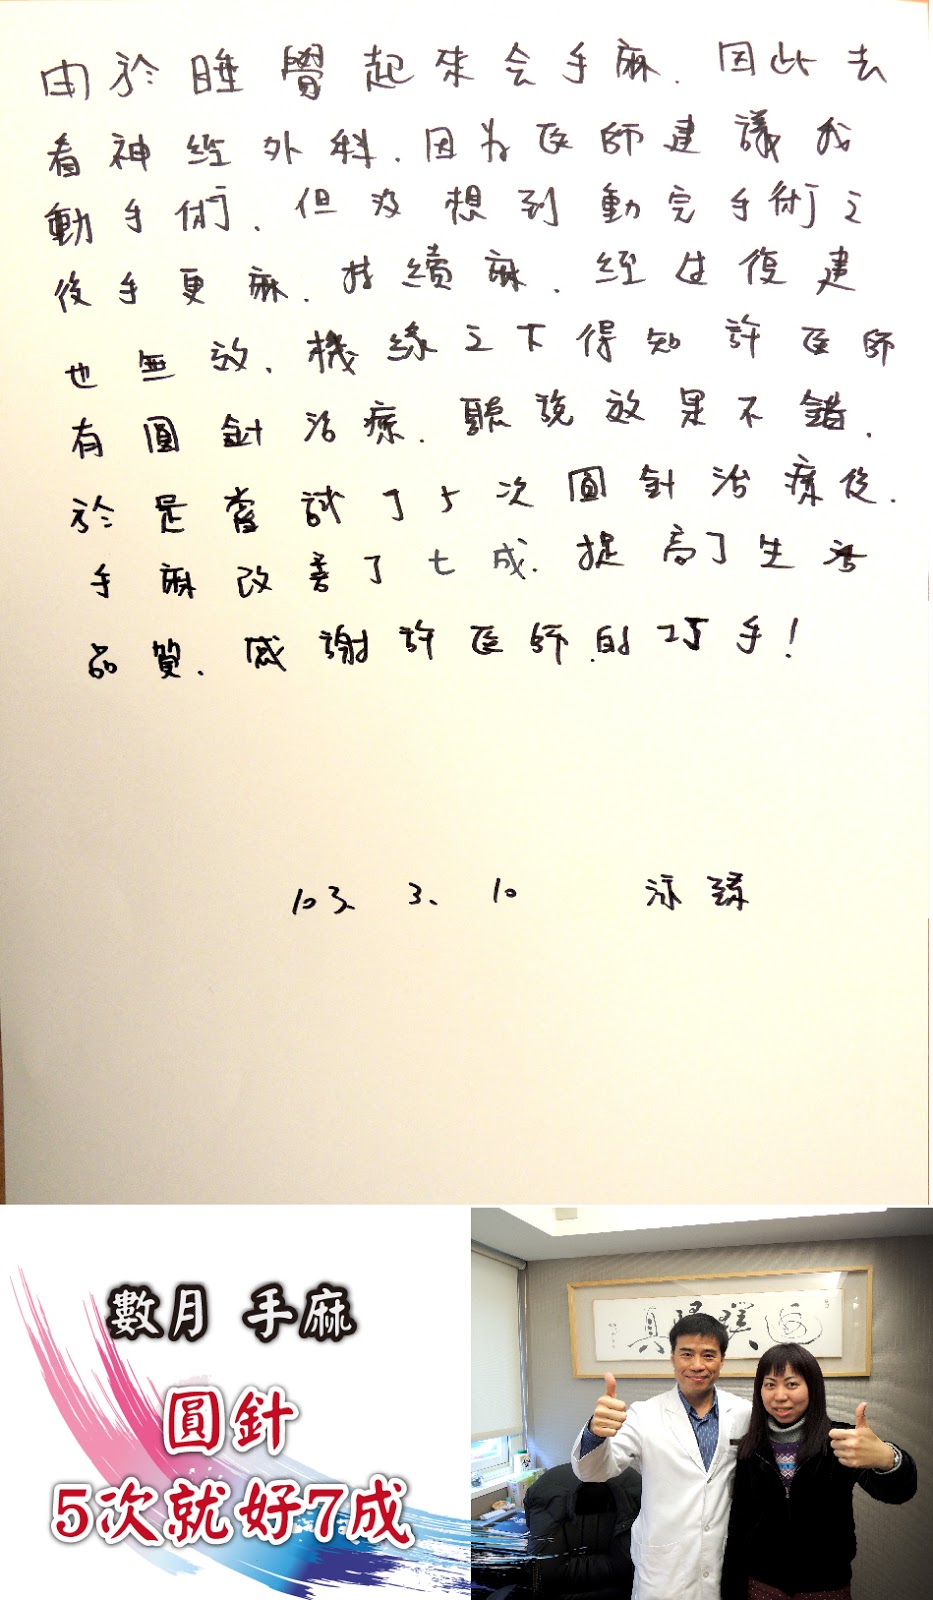 由於睡覺起來会手麻.因此去
看神經外科.因为医師建議我
動手術.但沒想到動完手術之
後手更麻.持續麻.經过復建
也無效.機緣之下得知許医師
有圓針治療.聽說效果不錯.
於是嘗試了5次圓針治療後.
手麻改善了七成.提高了生活
品質.感謝許医師的巧手!
103. 3. 10
數月 手麻
圓針
5次就好7成